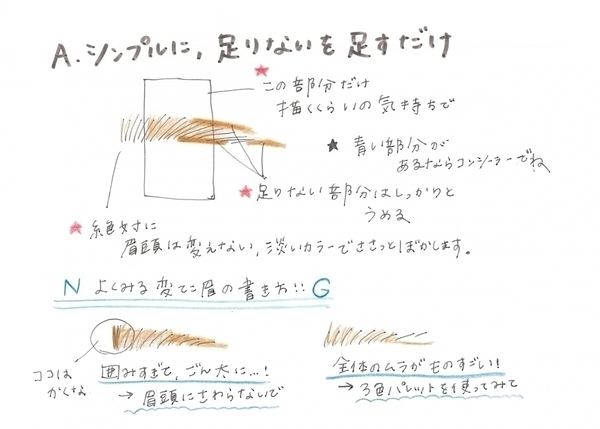 A.シンプルに,足りないを足すだけ
★この部分だけ
描くくらいの気持ちで
★青い部分が
あるならコンシーラーでね
★足りない部分はしっかりと
うめる
★絶対に
眉頭は変えない,淡いカラーでささっとぼかします。
N よくみる変てこ眉の書き方!! G
ココは
かくな
囲みすぎて,ごん太に…!
→眉頭にさわらないで
全体のムラがものすごい!
→3色パレットを使ってみて